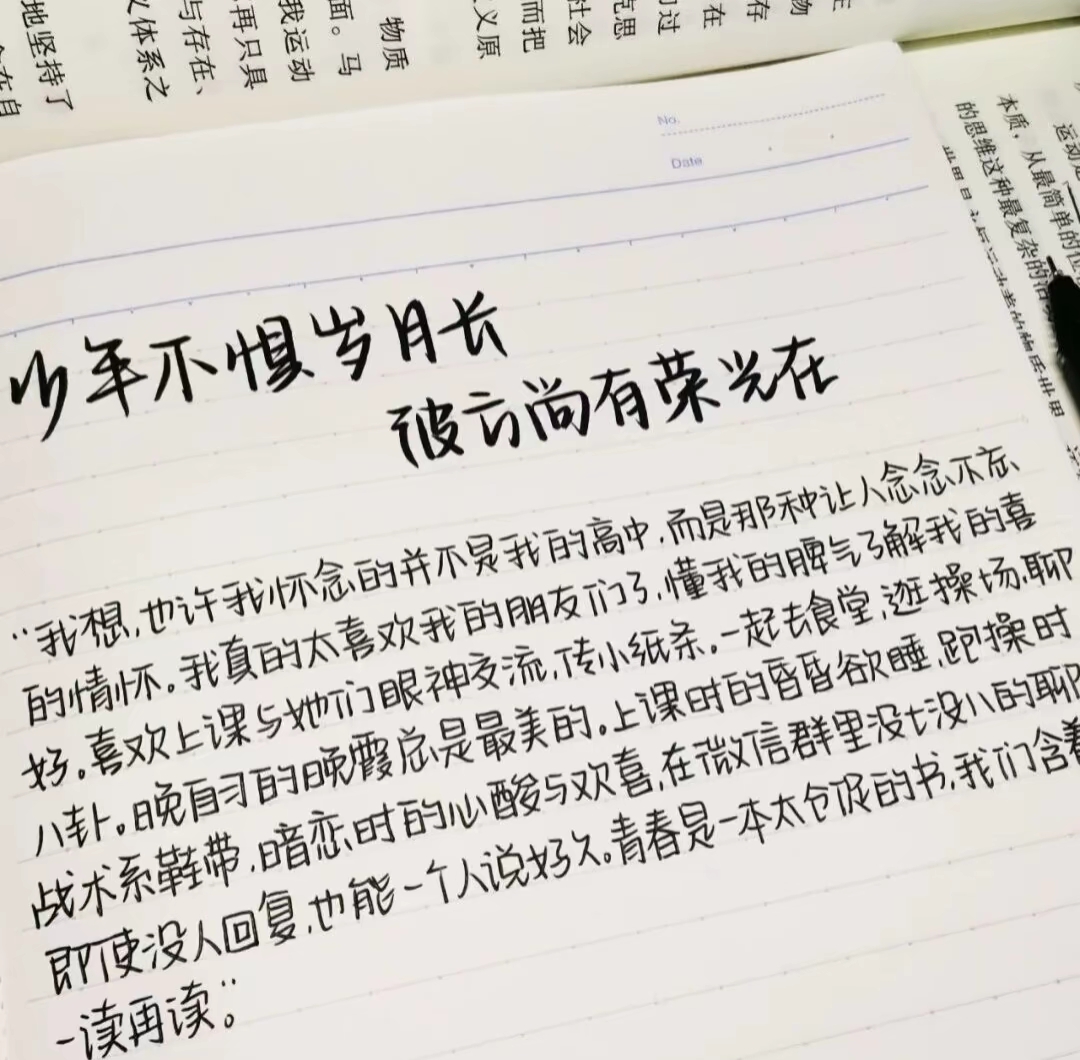 物质
面。马
我运动
再只具
与存在、
义体系之
地坚持了
在自
物
存
在
过
思
社会
而把
义原
No.
Date
本质，从最简单的位
的思维这种最复杂的
少年不惧岁月长
彼方尚有荣光在
“我想，也许我怀念的并不是我的高中，而是那种让人念念不忘
的情怀。我真的太喜欢我的朋友们了，懂我的脾气了解我的喜
好。喜欢上课与她们眼神交流，传小纸条。一起去食堂，逛操场，聊
八卦。晚自习的晚霞总是最美的。上课时的昏昏欲睡，跑操时
战术系鞋带，暗恋时的心酸与欢喜，在微信群里没七没八的聊
即使没人回复，也能一个人说好久。青春是一本太仓促的书，我们含着
一读再读”。